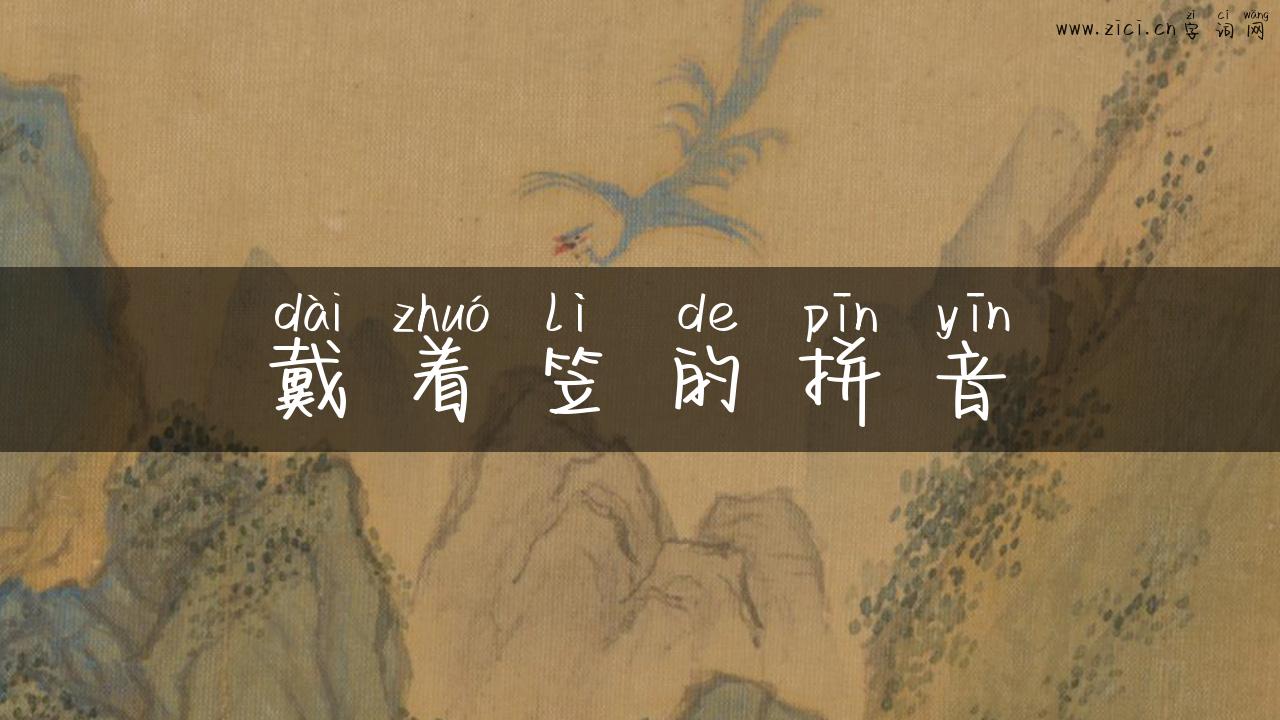 zì cí wǎng
www.zici.cn字词网
dài zhuó lì de pīn yīn
戴着笠的拼音